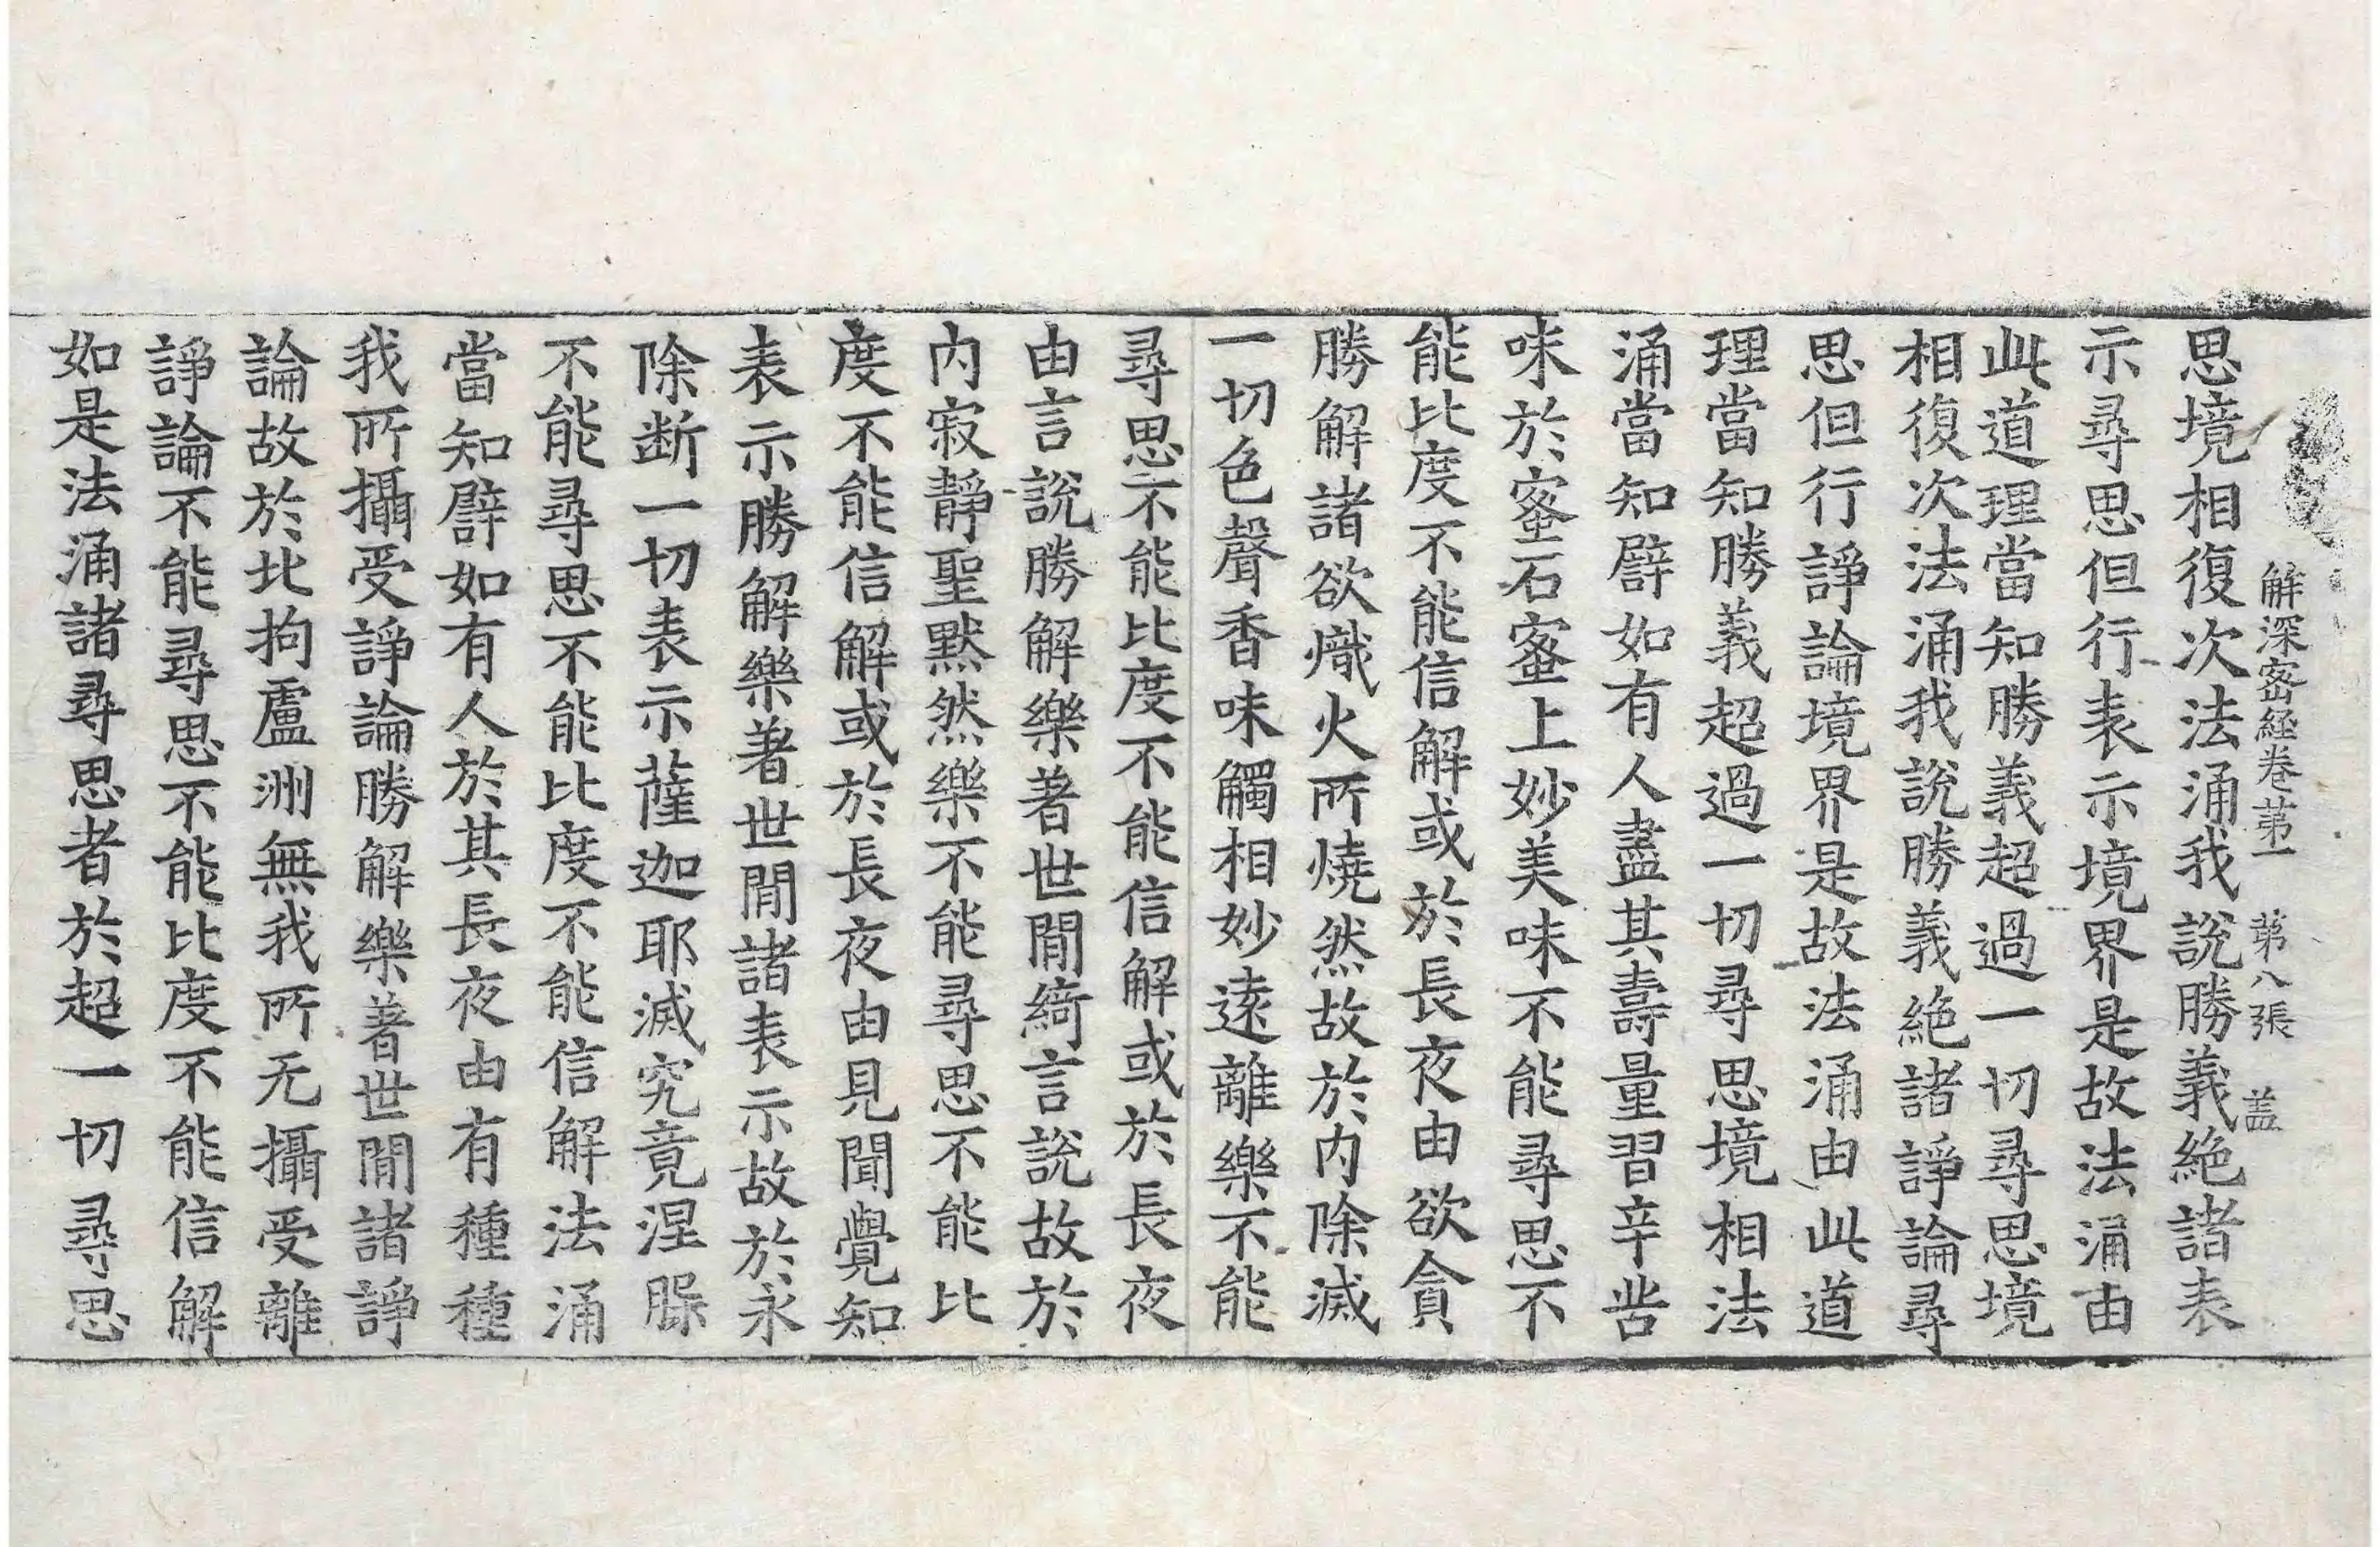 解深密經卷苐一　苐八張　盖
思境相復次法涌我說勝義絶諸表
示尋思但行表示境界是故法涌由
此道理當知勝義超過一切尋思境
相復次法涌我說勝義絶諸諍論尋
思但行諍論境界是故法涌由此道
理當知勝義超過一切尋思境相法
涌當知譬如有人盡其壽量習辛苦
味於蜜石蜜上妙美味不能尋思不
能比度不能信解或於長夜由欲貪
勝解諸欲熾火所燒然故於内除滅
一切色聲香味觸相妙遠離樂不能
尋思不能比度不能信解或於長夜
由言說勝解樂著世間綺言說故於
内寂靜聖默然樂不能尋思不能比
度不能信解或於長夜由見聞覺知
表示勝解樂著世間諸表示故於永
除断一切表示薩迦耶滅究竟涅槃
不能尋思不能比度不能信解法涌
當知譬如有人於其長夜由有種種
我所攝受諍論勝解樂著世間諸諍
論故於北拘盧洲無我所无攝受離
諍論不能尋思不能比度不能信解
如是法涌諸尋思者於超一切尋思